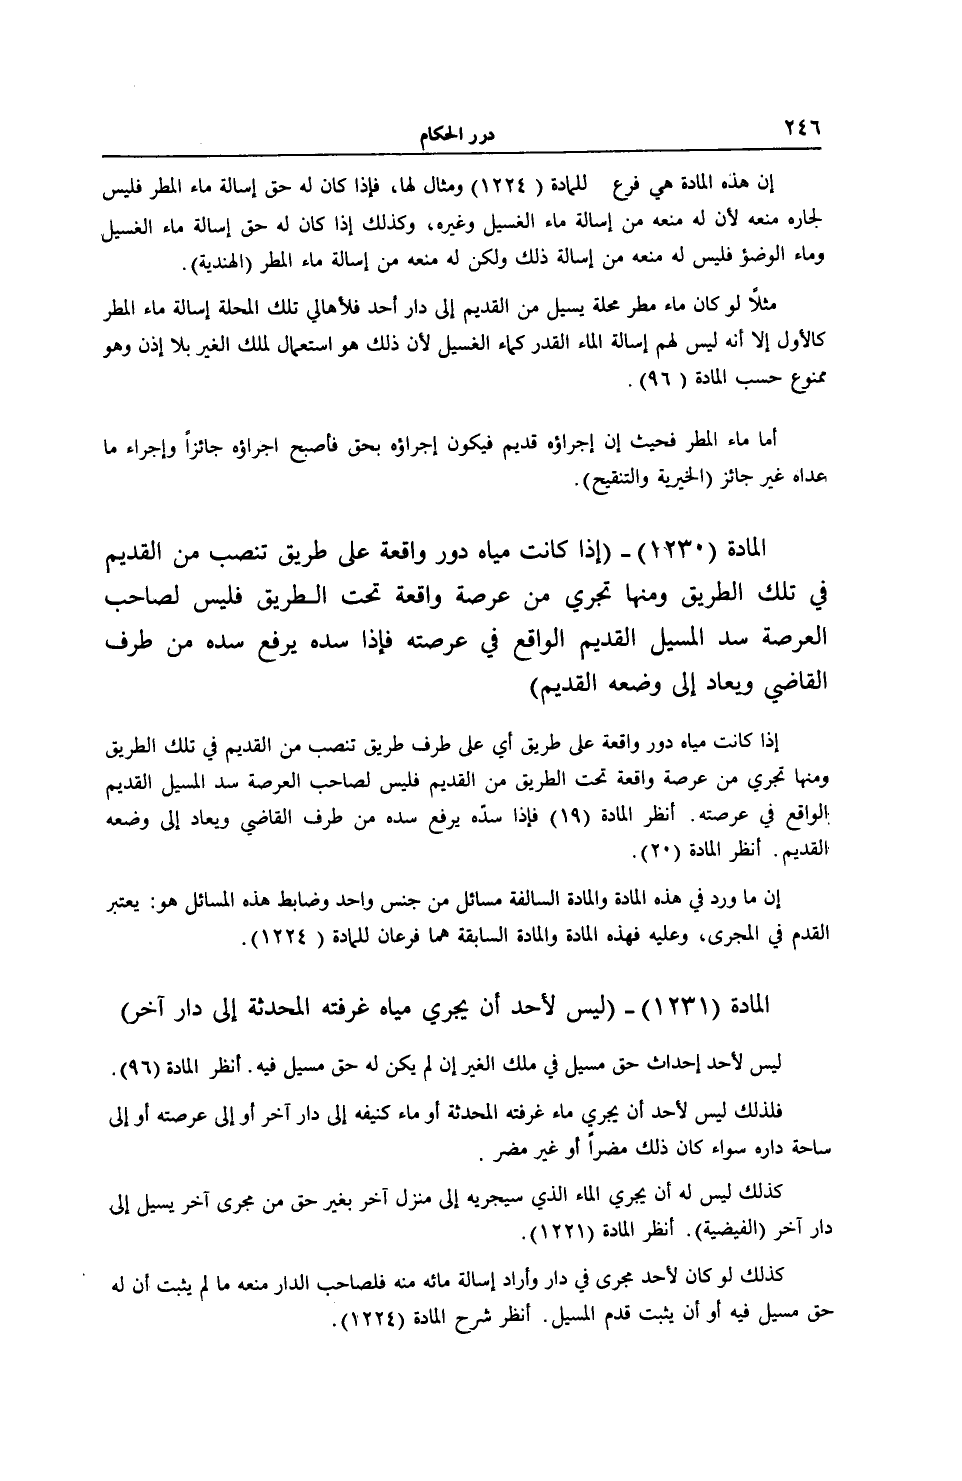 ٢٤٦
درر الحكام
إن هذه المادة هي فرع للمادة ( ١٢٢٤) ومثال لها، فإذا كان له حق إسالة ماء المطر فليس
لجاره منعه لأن له منعه من إسالة ماء الغسيل وغيره، وكذلك إذا كان له حق إسالة ماء الغسيل
وماء الوضؤ فليس له منعه من إسالة ذلك ولكن له منعه من إسالة ماء المطر (الهندية).
مثلاً لو كان ماء مطر محلة يسيل من القديم إلى دار أحد فلأهالي تلك المحلة إسالة ماء المطر
كالأول إلا أنه ليس لهم إسالة الماء القدر كماء الغسيل لأن ذلك هو استعمال لملك الغير بلا إذن وهو
ممنوع حسب المادة ( ٩٦) .
أما ماء المطر فحيث إن إجراؤه قديم فيكون إجراؤه بحق فأصبح اجراؤه جائزاً وإجراء ما
عداه غير جائز (الخيرية والتنقيح).
المادة (١٢٣٠) - (إذا كانت مياه دور واقعة على طريق تنصب من القديم
في تلك الطريق ومنها تجري من عرصة واقعة تحت الطريق فليس لصاحب
العرصة سد المسيل القديم الواقع في عرصته فإذا سده يرفع سده من طرف
القاضي ويعاد إلى وضعه القديم)
إذا كانت مياه دور واقعة على طريق أي على طرف طريق تنصب من القديم في تلك الطريق
ومنها تجري من عرصة واقعة تحت الطريق من القديم فليس لصاحب العرصة سد المسيل القديم
الواقع في عرصته. أنظر المادة (١٩) فإذا سدّه يرفع سده من طرف القاضي ويعاد إلى وضعه
القديم. أنظر المادة (٢٠).
إن ما ورد في هذه المادة والمادة السالفة مسائل من جنس واحد وضابط هذه المسائل هو: يعتبر
القدم في المجرى، وعليه فهذه المادة والمادة السابقة هما فرعان للمادة ( ١٢٢٤).
المادة (١٢٣١) - (ليس لأحد أن يجري مياه غرفته المحدثة إلى دار آخر)
ليس لأحد إحداث حق مسيل في ملك الغير إن لم يكن له حق مسيل فيه. أنظر المادة (٩٦).
فلذلك ليس لأحد أن يجري ماء غرفته المحدثة أو ماء كنيفه إلى دار آخر أو إلى عرصته أو إلى
ساحة داره سواء كان ذلك مضراً أو غير مضر .
كذلك ليس له أن يجري الماء الذي سيجريه إلى منزل آخر بغير حق من مجرى آخر يسيل إلى
دار آخر (الفيضية). أنظر المادة (١٢٢١).
كذلك لو كان لأحد مجرى في دار وأراد إسالة مائه منه فلصاحب الدار منعه ما لم يثبت أن له
حق مسيل فيه أو أن يثبت قدم المسيل. أنظر شرح المادة (١٢٢٤).